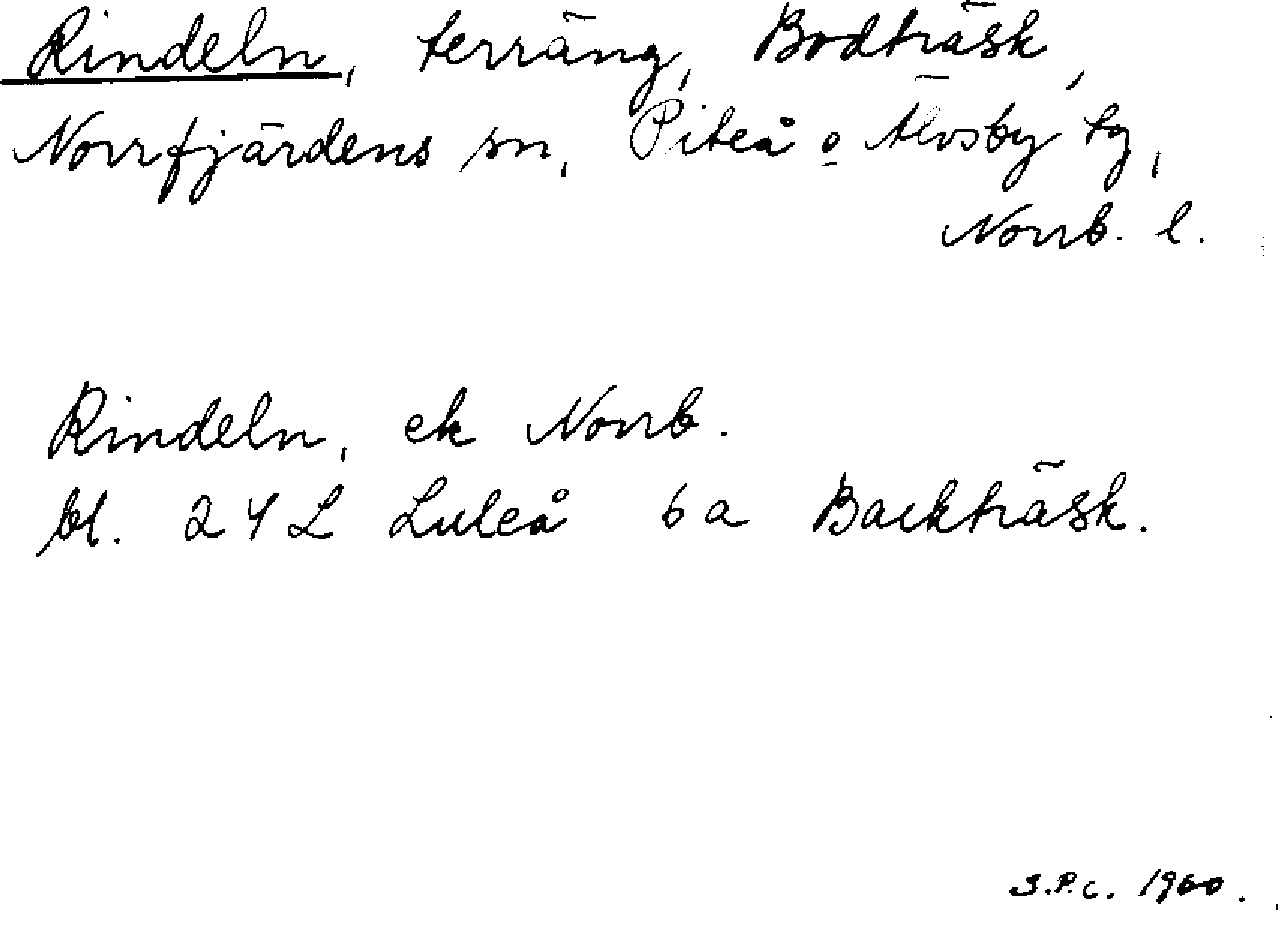 Rindeln, terräng, Bodträsk,
Norrfjärdens sn, Piteå o Älvsby tg,
Norrb. l.
Rindeln, ek Norrb.
bl. 24 L Luleå 6 a Backträsk.
S.P.C. 1960.